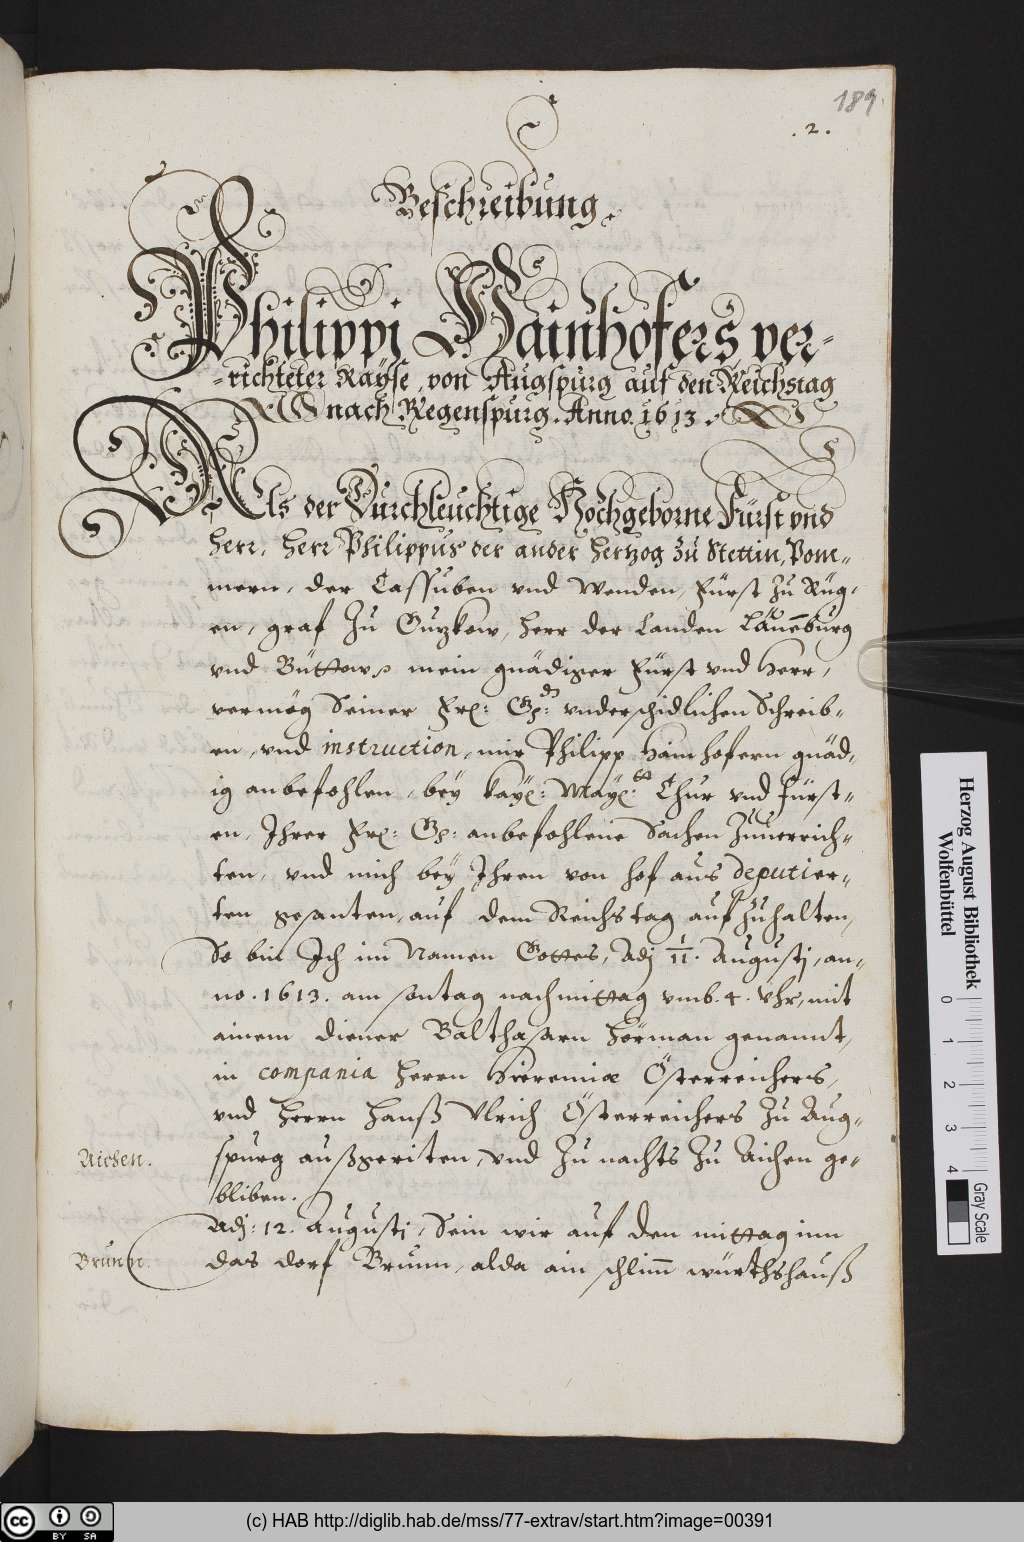 189
.2.
Beschreibung.
Philippi Hainhofers ver-
-richteter Rayse, von Augspurg auf den Reichstag
nach Regenspurg. Anno. 1613.
Als der Durchleuchtige Hochgeborne Fürst vnd
herr, herr Philippus der ander hertzog zu Stettin, Pom-
mern, der Cassuben vnd Wenden, Fürst zu Rüg-
en, graf zu Guzkow, herr der Landen Lauenburg
vnd Büttow, mein gnädiger Fürst vnd Herr,
vermög Seiner Frl: Gn: vnderschidlichen Schreib-
en, vnd instruction, mir Philipp Hainhofern gnäd-
ig anbefohlen, bey Kayl: Mayl: Chur vnd fürst-
en, Ihrer Frl: Gn: anbefohlene Sachen zuuerrich-
ten, vnd mich bey Ihren von hof aus deputier-
ten gesanten, auf dem Reichstag aufzuhalten,
So bin Ich im Namen Gottes, Adj 1/11. Augustj, an-
no. 1613. am sontag nachmittag vmb. 4. Vhr, mit
ainem diener Balthasarn Hörman genannt,
in compania herrn Hieremiæ Österreichers,
vnd herrn Hanß Vlrich Österreichers zu Aug-
spurg außgeriten, vnd zu nachts zu Aichen ge-
bliben.
Aichen.
Adj: 12. Augustj, Sein wir auf den mittag inn
das dorf Brunn, alda ain schlim̅ würthshauß
Brunn.
Herzog August Bibliothek
Wolfenbüttel
0 1 2 3 4
Gray Scale
cc BY SA
(c) HAB http://diglib.hab.de/mss/77-extrav/start.htm?image=00391